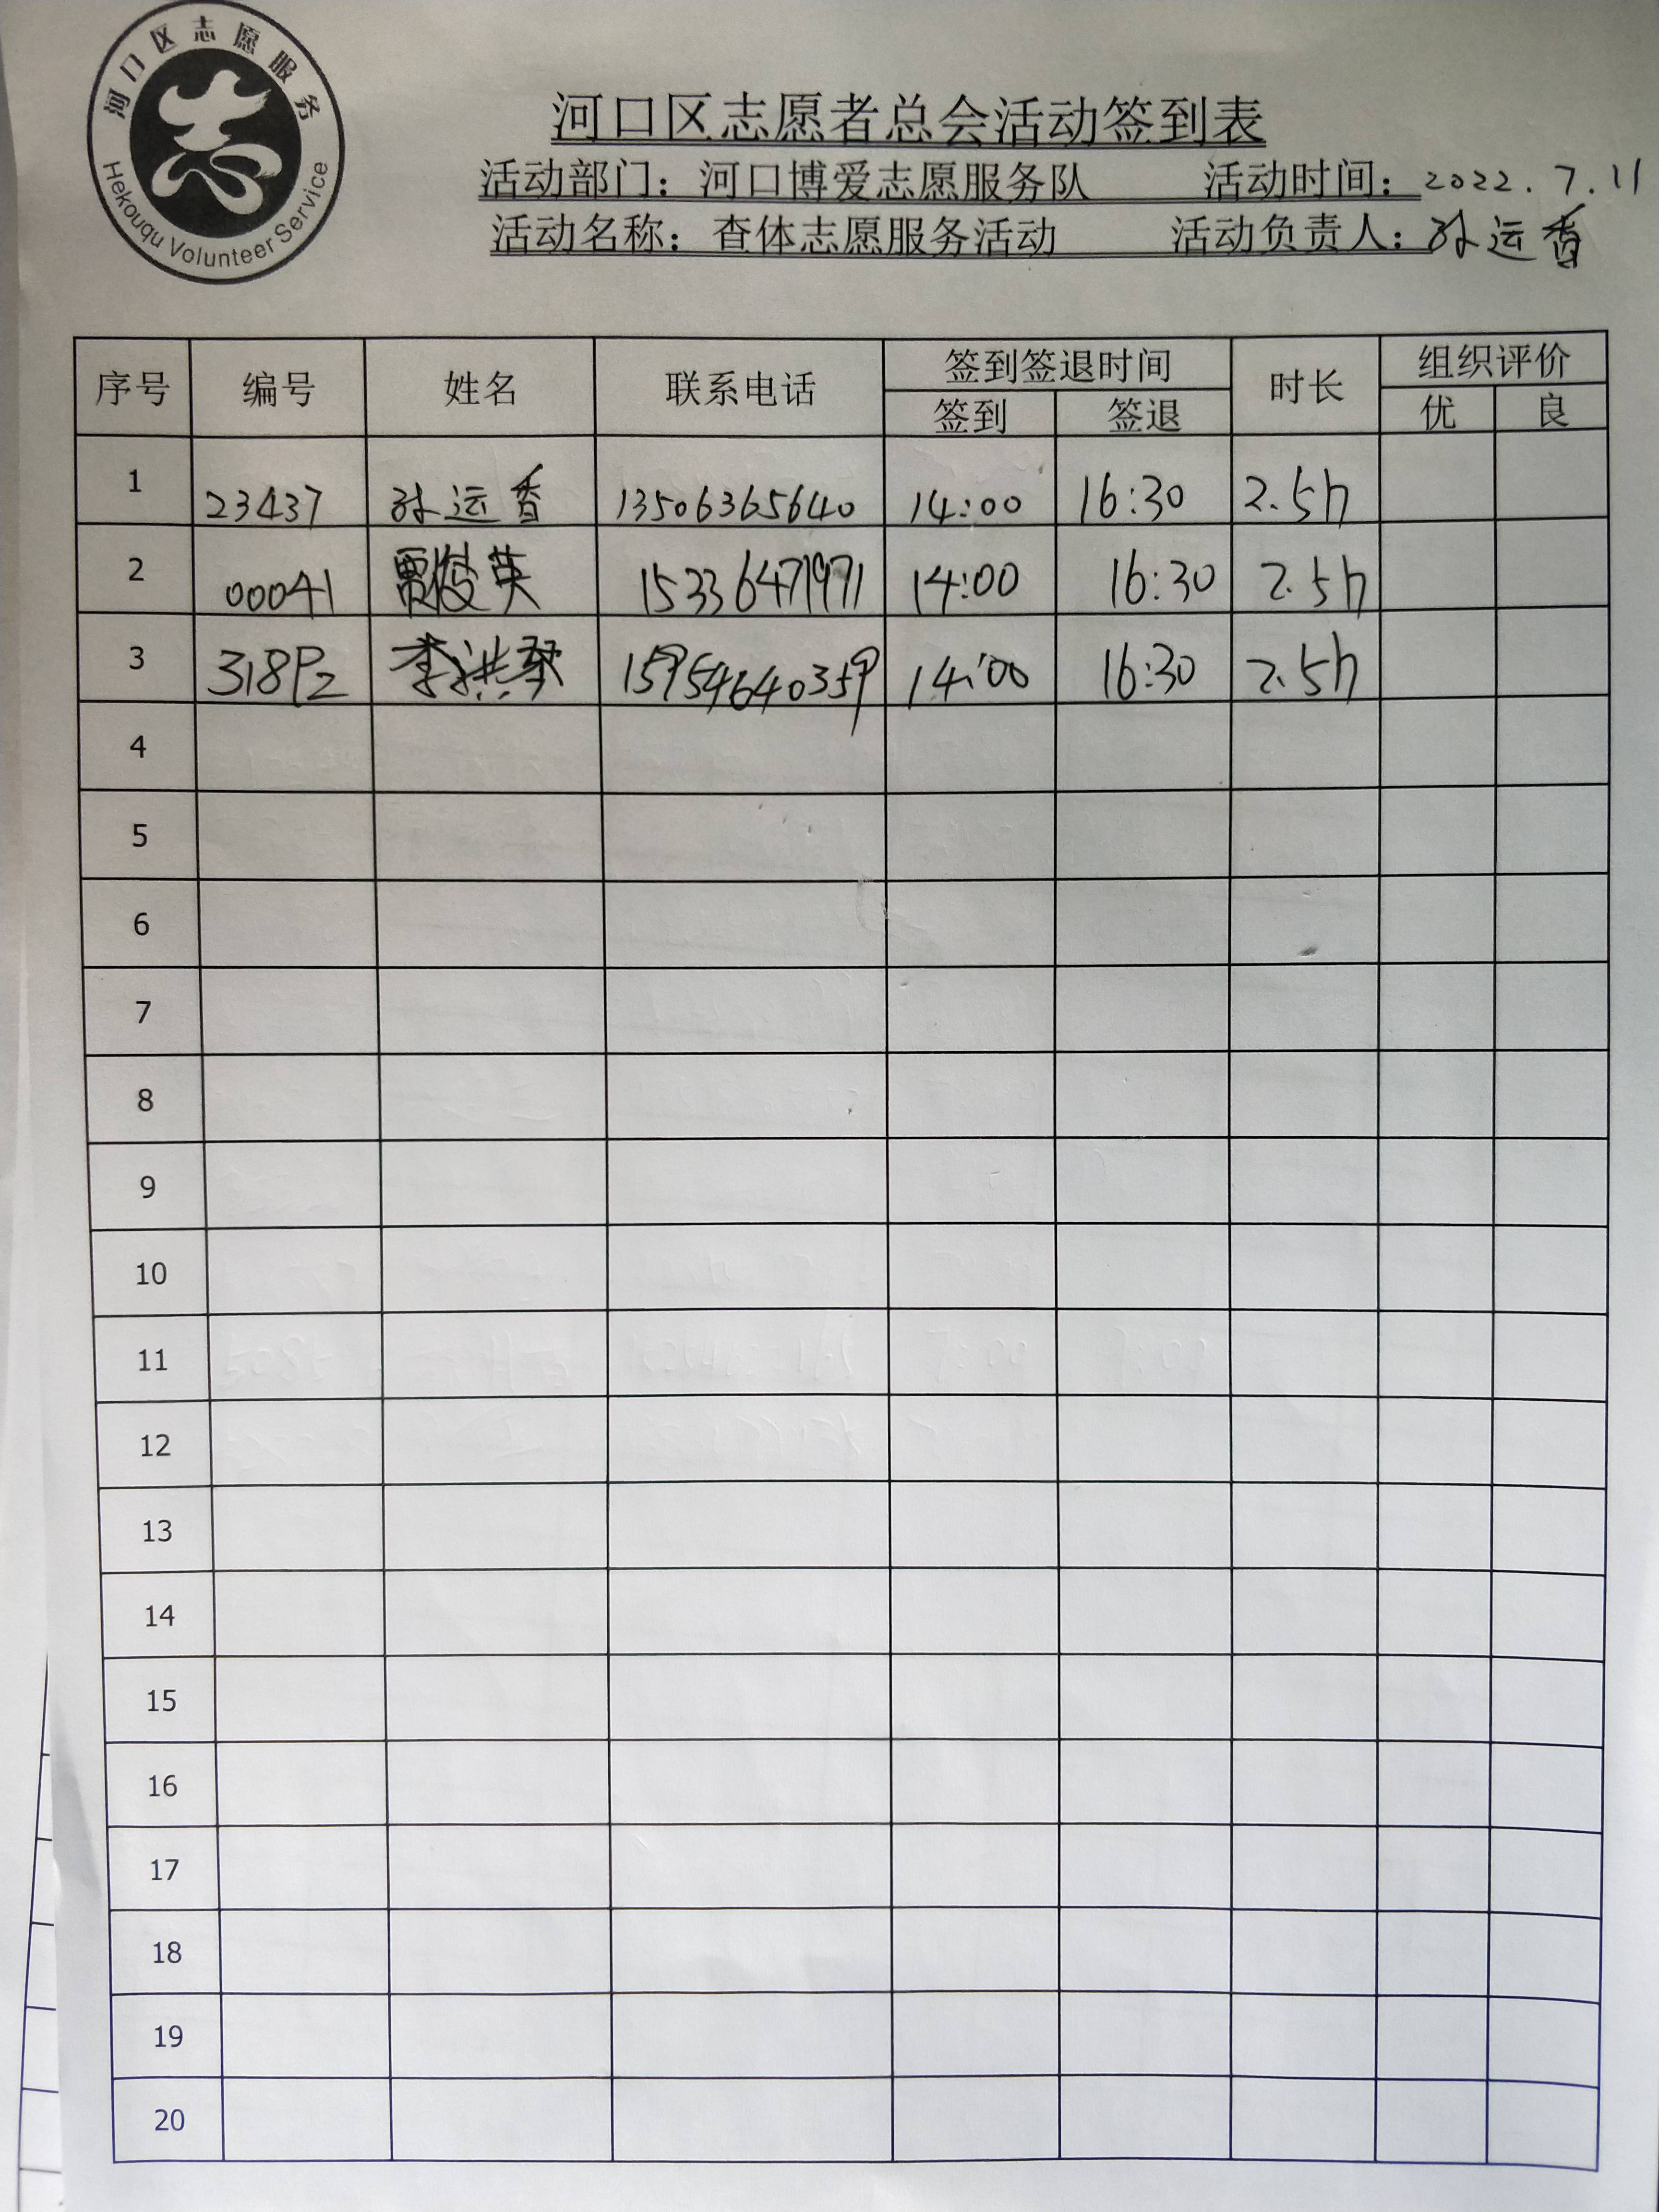 河口区志愿服务
Hekouqu Volunteer Service
河口区志愿者总会活动签到表
活动部门：河口博爱志愿服务队 活动时间：2022.7.11
活动名称：查体志愿服务活动 活动负责人：孙运香
序号 编号 姓名 联系电话 签到签退时间 时长 组织评价
签到 签退 优 良
1 23437 孙运香 13506365640 14:00 16:30 2.5h
2 00041 贾俊英 15336471971 14:00 16:30 2.5h
3 31892 李洪琴 15954640359 14:00 16:30 2.5h
4
5
6
7
8
9
10
11
12
13
14
15
16
17
18
19
20